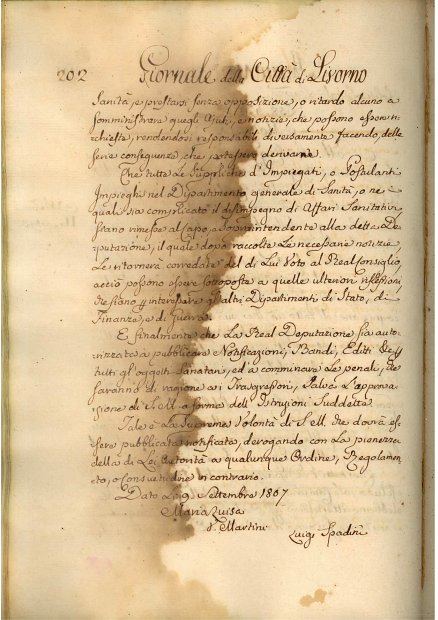 202 Giornale della Città di Livorno
Sanità, e prestarsi senza opposizione, o ritardo alcuno a
somministrare quegl'Ajuti, e notizie, che possono esser ri=
chieste, rendendosi responsabili diversamente facendo, delle
serie conseguenze che potessero derivarne.
Che tutte le suppliche d'Impiegati, o Postulanti
Impieghi nel Dipartimento generale di Sanità, o ne
quali sia complicato il disimpegno di Affari Sanitativi
siano rimesse al Capo, e Soprintendente alla detta De=
putazione, il quale dopo raccolte le necessarie notizie
le ritornerà corredate del di Lui Voto al Real Consiglio,
acciò possono essere sottoposte a quelle ulteriori riflessioni
che siano interessare gl'altri Dipartimenti di Stato, di
Finanze, e di Guerra.
E finalmente che la Real Deputazione sia auto=
rizzata a pubblicare Notificazioni, Bandi, Editti
tutti gl'oggetti Sanitari, ed a comminare le penali, che
saranno di ragione ai Trasgressori, Salva l'approva=
zione di S. M. a forma dell'Istruzioni Suddette.
Tale è la Suprema Volontà di S. M. che dovrà es=
sere pubblicata, e notificata, derogando con la pienezza
della di Lei Autorità a qualunque Ordine, Regolamen=
to, o Consuetudine in contrario.
Dato Li 9 Settembre 1807
Maria Luisa
V. Martini
Luigi Spadini